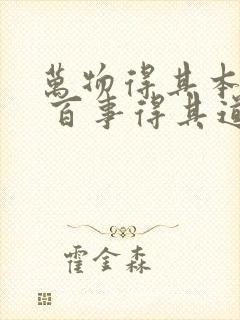 萬物得其本
百事得其道
霍金森